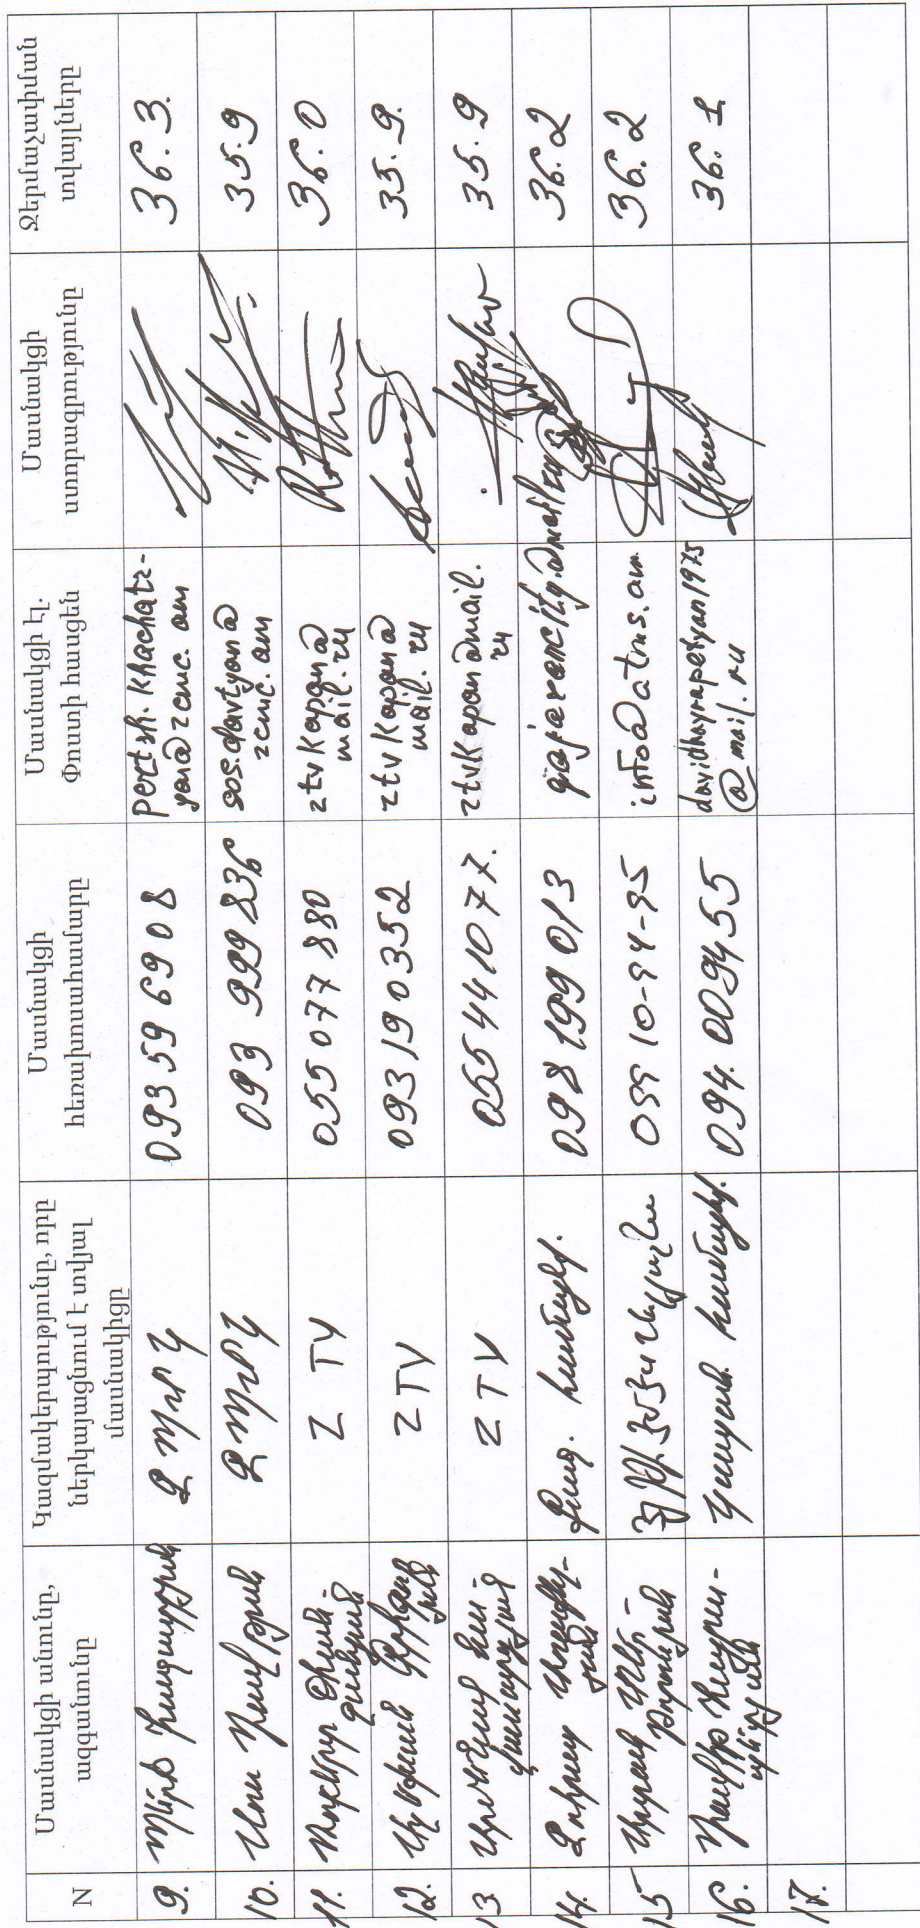 N
Մասնակցի անունը,
ազգանունը
Կազմակերպությունը, որը
ներկայացնում է տվյալ
մասնակիցը
Մասնակցի
հեռախոսահամարը
Մասնակցի էլ.
Փոստի հասցեն
Մասնակցի
ստորագրությունը
Ջերմաչափման
տվյալները
9.
Պերճ Խաչատրյան
ԶՊՄԿ
093 59 69 08
pertsh.khachatr-
yan@zcmc.am
36.3.
10.
Սոս Դավթյան
ԶՊՄԿ
093 999 836
sos.davtyan@
zcmc.am
35.9
11.
Z TV
055 077 880
ztvkapan@
mail.ru
36.0
12.
Z TV
093 19 03 52
ztvkapan@
mail.ru
35.9.
13
Z TV
055 44 10 77.
ztvkapan@mail.
ru
35.9
14.
Քաջ. համայնք.
098 199 013
36.2
15
099 10-94-95
info@atms.am
36.2
16.
Դավիթ Հայրա-
պետյան
Կապան համայնք.
094. 009455
davithayrapetyan1975
@mail.ru
36.1
17.